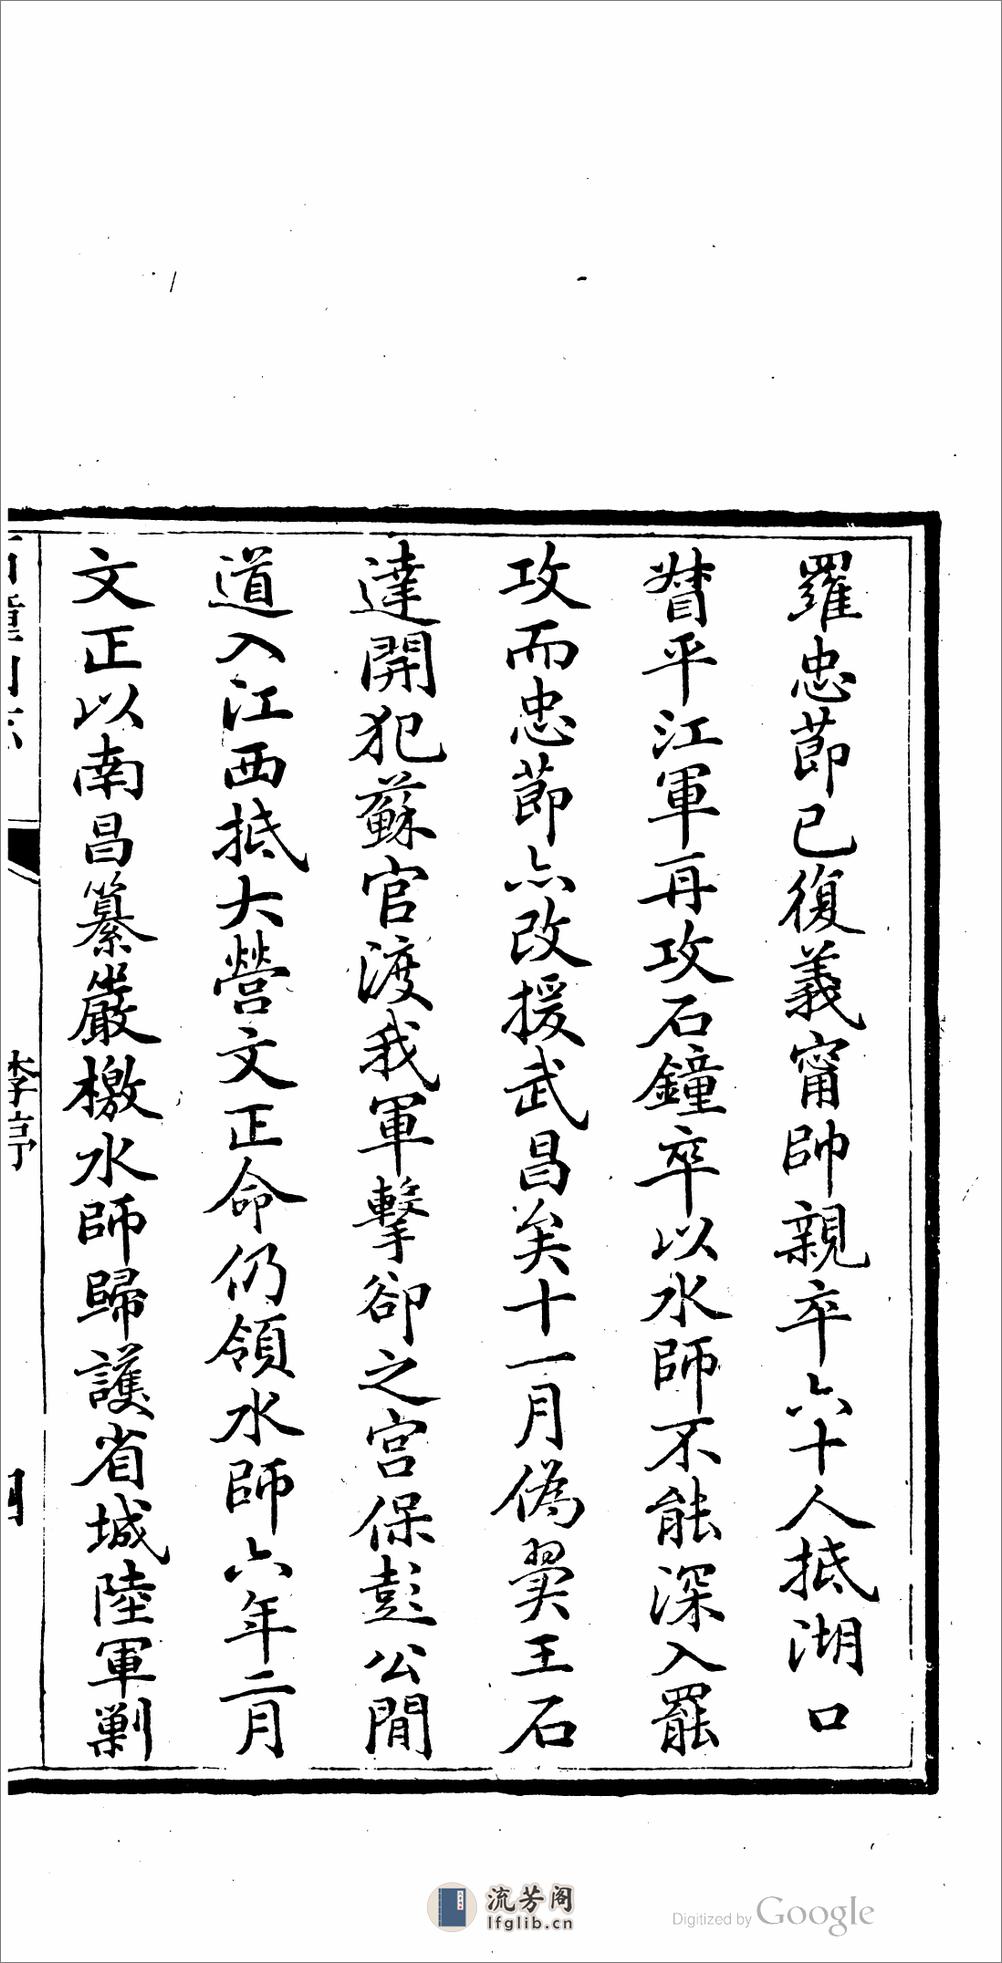 羅忠節已復義甯帥親卒六十人抵湖口
督平江軍再攻石鐘卒以水師不能深入罷
攻而忠節亦改援武昌矣十一月偽翼王石
達開犯蘇官渡我軍擊卻之宮保彭公閒
道入江西抵大營文正命仍領水師六年二月
文正以南昌纂嚴檄水師歸護省城陸軍剿
石鐘山志
李亭
四
流芳阁
lfglib.cn
Digitized by Google